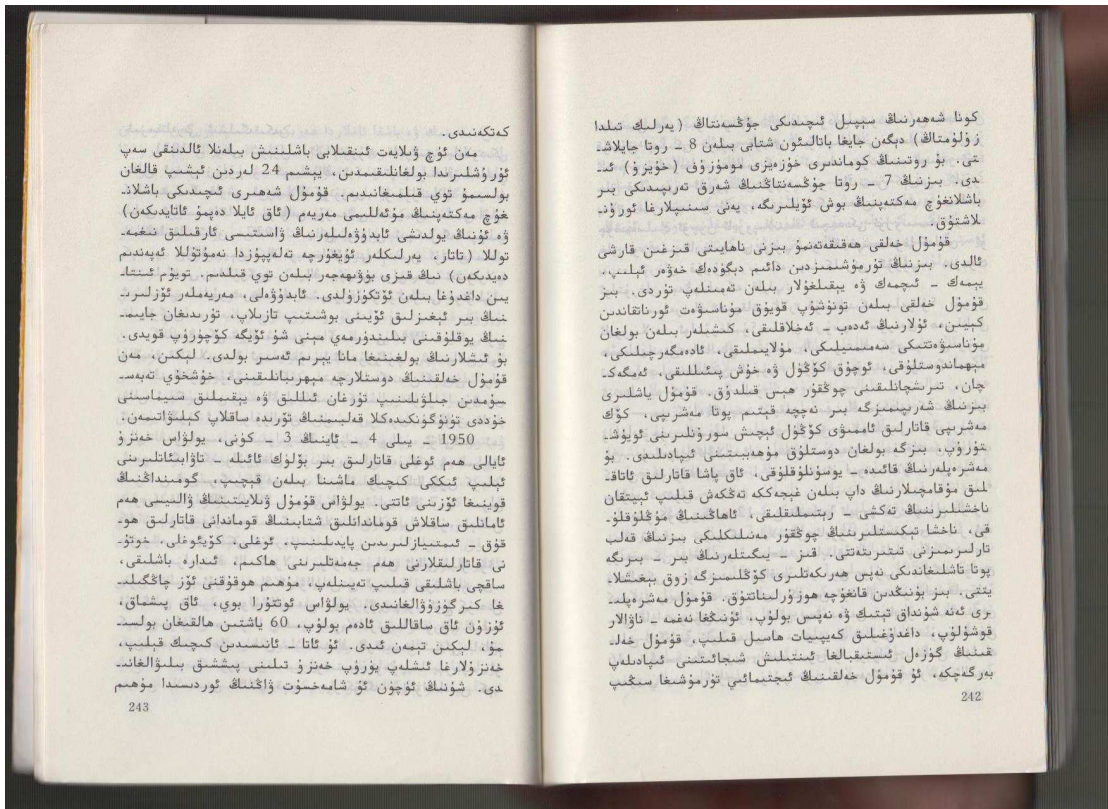 كونا شەھەرنىڭ سېپىل ئىچىدىكى جۇڭسەنتاڭ (يەرلىك تىلدا
زۇلۇمتاڭ) دېگەن جايغا باتالىئون شتابى بىلەن 8 ـ روتا جايلاشـ
تى. بۇ روتىنىڭ كوماندىرى خۇزەيزى مومۇزۇف (خۇيزۇ) ئىـ
دى. بىزنىڭ 7 ـ روتا جۇڭسەنتاڭنىڭ شەرق تەرىپىدىكى بىر
باشلانغۇچ مەكتەپنىڭ بوش ئۆيلىرىگە، يەنى سىنىپلارغا ئورۇنـ
لاشتۇق.
قۇمۇل خەلقى ھەقىقەتەنمۇ بىزنى ناھايىتى قىزغىن قارشى
ئالدى. بىزنىڭ تۇرمۇشىمىزدىن دائىم دېگۈدەك خەۋەر ئېلىپ،
يېمەك ـ ئىچمەك ۋە يېقىلغۇلار بىلەن تەمىنلەپ تۇردى. بىز
قۇمۇل خەلقى بىلەن تونۇشۇپ قويۇق مۇناسىۋەت ئورناتقاندىن
كېيىن، ئۇلارنىڭ ئەدەب ـ ئەخلاقلىقى، كىشىلەر بىلەن بولغان
مۇناسىۋەتتىكى سەمىمىيلىكى، مۇلايىملىقى، ئادەمگەرچىلىكى،
مېھماندوستلۇقى، ئوچۇق كۆڭۈل ۋە خۇش پېئىللىقى، ئەمگەكـ
چان، تىرىشچانلىقىنى چوڭقۇر ھېس قىلدۇق. قۇمۇل ياشلىرى
بىزنىڭ شەرىپىمىزگە بىر نەچچە قېتىم پوتا مەشرىپى، كۆك
مەشرىپى قاتارلىق ئاممىۋى كۆڭۈل ئېچىش سورۇنلىرىنى ئويۇشـ
تۇرۇپ، بىزگە بولغان دوستلۇق مۇھەببىتىنى ئىپادىلىدى. بۇ
مەشرەپلەرنىڭ قائىدە ـ يوسۇنلۇقلۇقى، ئاق پاشا قاتارلىق ئاتاقـ
لىق مۇقامچىلارنىڭ داپ بىلەن غېجەككە تەڭكەش قىلىپ ئېيتقان
ناخشىلىرىنىڭ تەكشى ـ رېتىملىقلىقى، ئاھاڭنىڭ مۇڭلۇقلۇـ
قى، ناخشا تېكىستلىرىنىڭ چوڭقۇر مەنىلىكلىكى بىزنىڭ قەلب
تارلىرىمىزنى تىترىتەتتى. قىز ـ يىگىتلەرنىڭ بىر ـ بىرىگە
پوتا تاشلىغاندىكى نەپىس ھەرىكەتلىرى كۆڭلىمىزگە زوق بېغىشلاـ
يتتى. بىز بۇنىڭدىن قانغۇچە ھوزۇرلىناتتۇق. قۇمۇل مەشرەپلىـ
رى ئەنە شۇنداق تېتىك ۋە نەپىس بولۇپ، ئۇنىڭغا نەغمە ـ ناۋالار
قوشۇلۇپ، داغدۇغىلىق كەيپىيات ھاسىل قىلىپ، قۇمۇل خەلـ
قىنىڭ گۈزەل ئىستىقبالغا ئىنتىلىش شىجائىتىنى ئىپادىلەپ
بەرگەچكە، ئۇ قۇمۇل خەلقىنىڭ ئىجتىمائىي تۇرمۇشىغا سىڭىپ
242
كەتكەنىدى.
مەن ئۈچ ۋىلايەت ئىنقىلابى باشلىنىش بىلەنلا ئالدىنقى سەپ
ئۇرۇشلىرىدا بولغانلىقىمدىن، يېشىم 24 لەردىن ئېشىپ قالغان
بولسىمۇ توي قىلمىغانىدىم. قۇمۇل شەھىرى ئىچىدىكى باشلانـ
غۇچ مەكتەپنىڭ مۇئەللىمى مەريەم (ئاق ئايلا دەپمۇ ئاتايدىكەن)
ۋە ئۇنىڭ يولدىشى ئابدۇۋەلىلەرنىڭ ۋاسىتىسى ئارقىلىق نىغمەـ
توللا (تاتار، يەرلىكلەر ئۇيغۇرچە تەلەپپۇزدا نەمۇتۇللا ئەپەندىم
دەيدىكەن) نىڭ قىزى بۇۋىھەجەر بىلەن توي قىلدىم. تويۇم ئىنتاـ
يىن داغدۇغا بىلەن ئۆتكۈزۈلدى. ئابدۇۋەلى، مەريەملەر ئۆزلىرىـ
نىڭ بىر ئېغىزلىق ئۆيىنى بوشىتىپ تازىلاپ، تۇرىدىغان جايىمـ
نىڭ يوقلۇقىنى بىلىندۈرمەي مېنى شۇ ئۆيگە كۆچۈرۈپ قويدى.
بۇ ئىشلارنىڭ بولغىنىغا مانا يېرىم ئەسىر بولدى. لېكىن، مەن
قۇمۇل خەلقىنىڭ دوستلارچە مېھرىبانلىقىنى، خۇشخۇي تەبەسـ
سۇمدىن جىلۋىلىنىپ تۇرغان ئىللىق ۋە يېقىملىق سىيماسىنى
خۇددى تۈنۈگۈنكىدەكلا قەلبىمنىڭ تۆرىدە ساقلاپ كېلىۋاتىمەن.
1950 ـ يىلى 4 ـ ئاينىڭ 3 ـ كۈنى، يولۋاس خەنزۇ
ئايالى ھەم ئوغلى قاتارلىق بىر بۆلۈك ئائىلە ـ تاۋابىئاتلىرىنى
ئېلىپ ئىككى كىچىك ماشىنا بىلەن قېچىپ، گومىنداڭنىڭ
قوينىغا ئۆزىنى ئاتتى. يولۋاس قۇمۇل ۋىلايىتىنىڭ ۋالىيسى ھەم
ئامانلىق ساقلاش قوماندانلىق شتابىنىڭ قوماندانى قاتارلىق ھوـ
قۇق ـ ئىمتىيازلىرىدىن پايدىلىنىپ، ئوغلى، كۈيئوغلى، خوتۇـ
نى قاتارلىقلارنى ھەم جەمەتلىرىنى ھاكىم، ئىدارە باشلىقى،
ساقچى باشلىقى قىلىپ تەيىنلەپ، مۇھىم ھوقۇقنى ئۆز چاڭگىلىـ
غا كىرگۈزۈۋالغانىدى. يولۋاس ئوتتۇرا بوي، ئاق پىشماق،
ئۇزۇن ئاق ساقاللىق ئادەم بولۇپ، 60 ياشتىن ھالقىغان بولسىـ
مۇ، لېكىن تېمەن ئىدى. ئۇ ئاتا ـ ئانىسىدىن كىچىك قېلىپ،
خەنزۇلارغا ئىشلەپ يۈرۈپ خەنزۇ تىلىنى پىششىق بىلىۋالغانىـ
دى. شۇنىڭ ئۈچۈن ئۇ شامەخسۇت ۋاڭنىڭ ئوردىسىدا مۇھىم
243